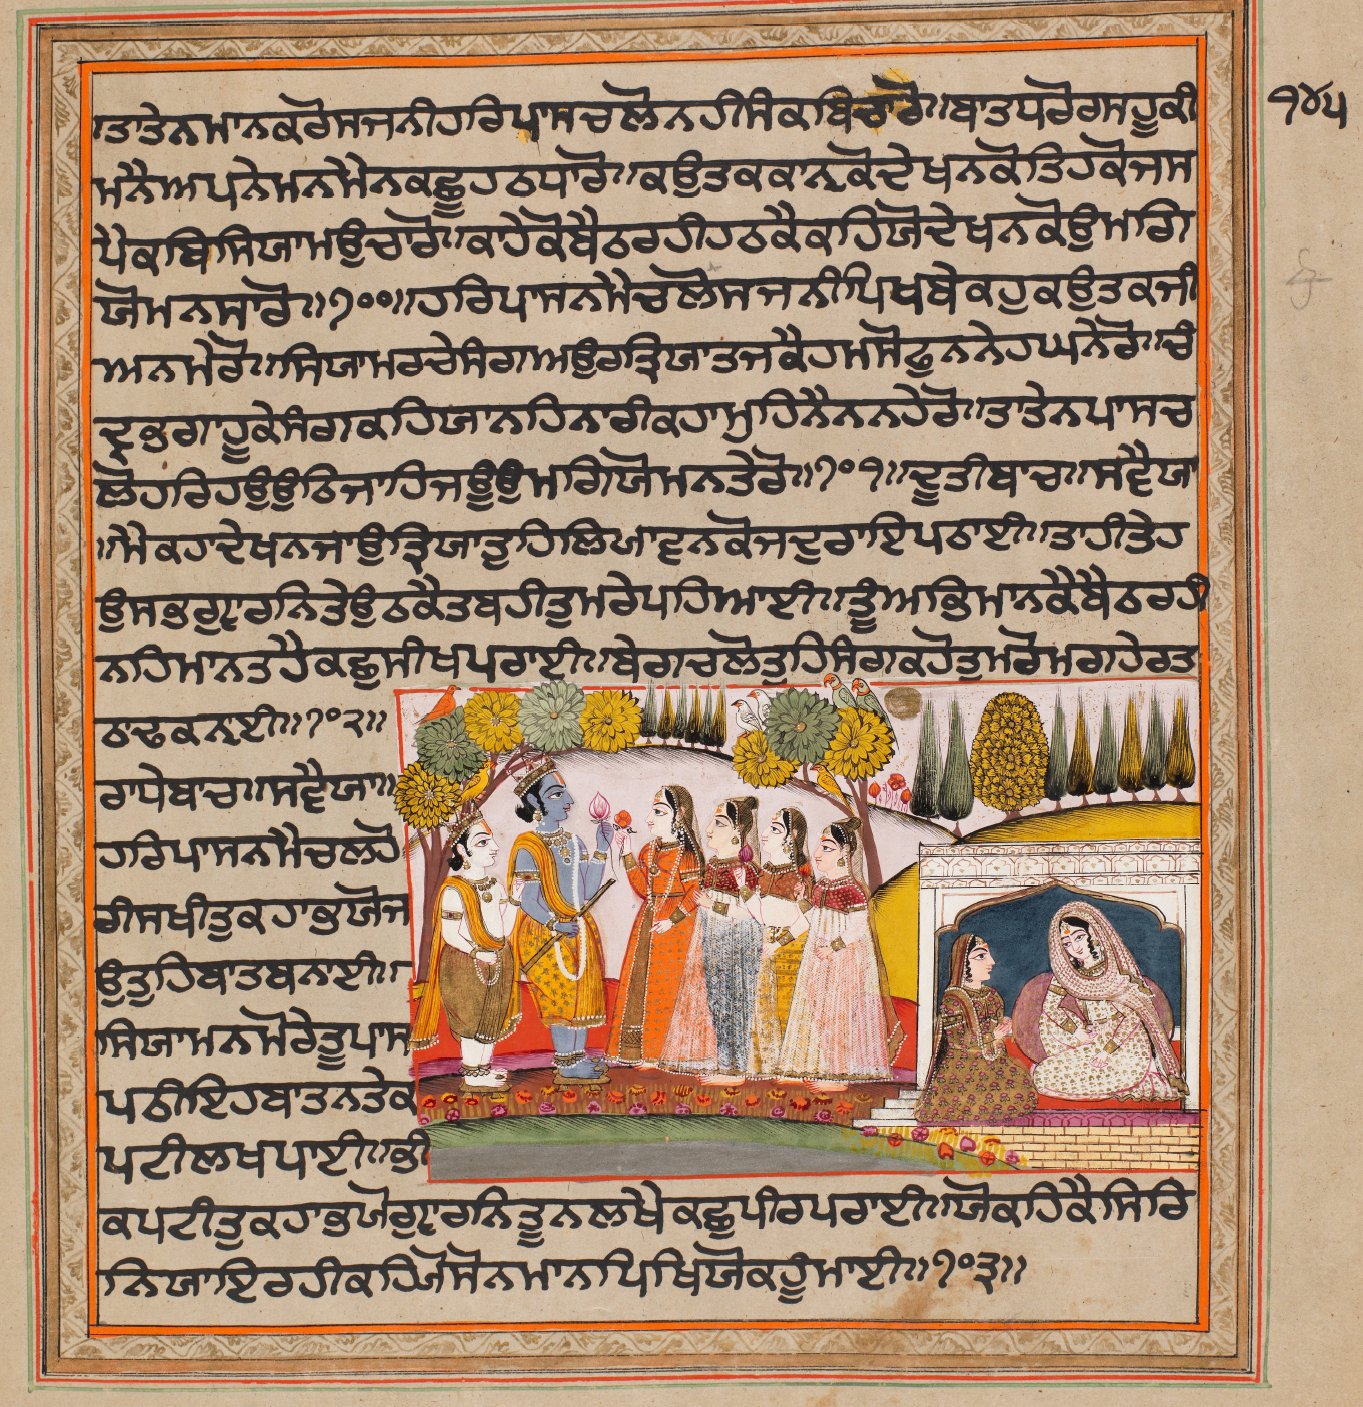 ੧੪੫
।ਤਾਤੇਨਮਾਨਕਰੋਸਜਨੀਹਰਿਪਾਸਚਲੋਨਹੀਸੰਕਬਿਚਾਰੋ॥ਬਾਤਧਰੋਰਸਹੂਕੀ
ਮਨੈਅਪਨੇਮਨਮੈਨਕਛੂਹਠਧਾਰੋ॥ਕਉਤਕਕਾਨ੍ਹਕੋਦੇਖਨਕੋਤਿਹਕੋਜਸ
ਪੈਕਬਿਸਿਯਾਮਉਚਾਰੋ॥ਕਾਹੇਕੋਬੈਠਰਹੀਹਠਕੈਕਹਿਯੋਦੇਖਨਕੋਉਮਗਿ
ਯੋਮਨਸਾਰੋ॥੭੦੦॥ਹਰਿਪਾਸਨਮੈਚਲੋਸਜਨੀਪਿਖਬੇਕਹੁਕਉਤਕਜੀ
ਅਨਮੇਰੋ॥ਸਿਯਾਮਰਚੇਸੰਗਅਉਰਤ੍ਰਿਯਾਤਜਕੈਹਮਸੋਫੁਨਨੇਹਘਨੇਰੋ॥ਚੰ
ਦ੍ਰਭਗਾਹੂਕੇਸੰਗਕਹਿਯਾਨਹਿਨਾਰੀਕਹਾਮੁਹਿਨੈਨਨਹੇਰੋ॥ਤਾਤੇਨਪਾਸਚ
ਲੋਹਰਿਹਉਉਠਿਜਾਹਿਜਊਉਮਗਿਯੋਮਨਤੇਰੋ॥੭੦੧॥ਦੂਤੀਬਾਚ॥ਸਵੈਯਾ
॥ਮੈਕਹਾਦੇਖਨਜਾਉਤ੍ਰਿਯਾਤੁਹਿਲਿਯਾਵਨਕੋਜਦੁਰਾਇਪਠਾਈ॥ਤਾਹੀਤੇਹ
ਉਸਭਗੁਆਰਨਿਤੇਉਠਕੈਤਬਹੀਤੁਮਰੇਪਹਿਆਈ॥ਤੂੰਅਭਿਮਾਨਕੈਬੈਠਰਹੀ
ਨਹਿਮਾਨਤਹੈਕਛੁਸੀਖਪਰਾਈ॥ਬੇਗਚਲੋਤੁਹਿਸੰਗਕਹੋਤੁਮਰੋਮਗਹੇਰਤ
ਠਾਢਕਨ੍ਹਈ॥੭੦੨॥
ਰਾਧੇਬਾਚ॥ਸਵੈਯਾ॥
ਹਰਿਪਾਸਨਮੈਚਲਹੋ
ਰੀਸਖੀਤੁਕਹਾਭਯੋਜ
ਉਤੁਹਿਬਾਤਬਨਾਈ॥
ਸਿਯਾਮਨਮੋਰੇਤੂਪਾਸ
ਪਠੀਇਹਬਾਤਨਤੇਕ
ਪਟੀਲਖਪਾਈ॥ਭੀ
ਕਪਟੀਤੁਕਹਾਭਯੋਗੁਆਰਨਿਤੂਨਲਖੈਕਛੁਪੀਰਪਰਾਈ॥ਯੋਕਹਿਕੈਸਿਰਿ
ਨਿਯਾਇਰਹੀਕਹਿਯੋਸੋਨਮਾਨਪਿਖਿਯੋਕਹੂੰਮਾਈ॥੭੦੩॥